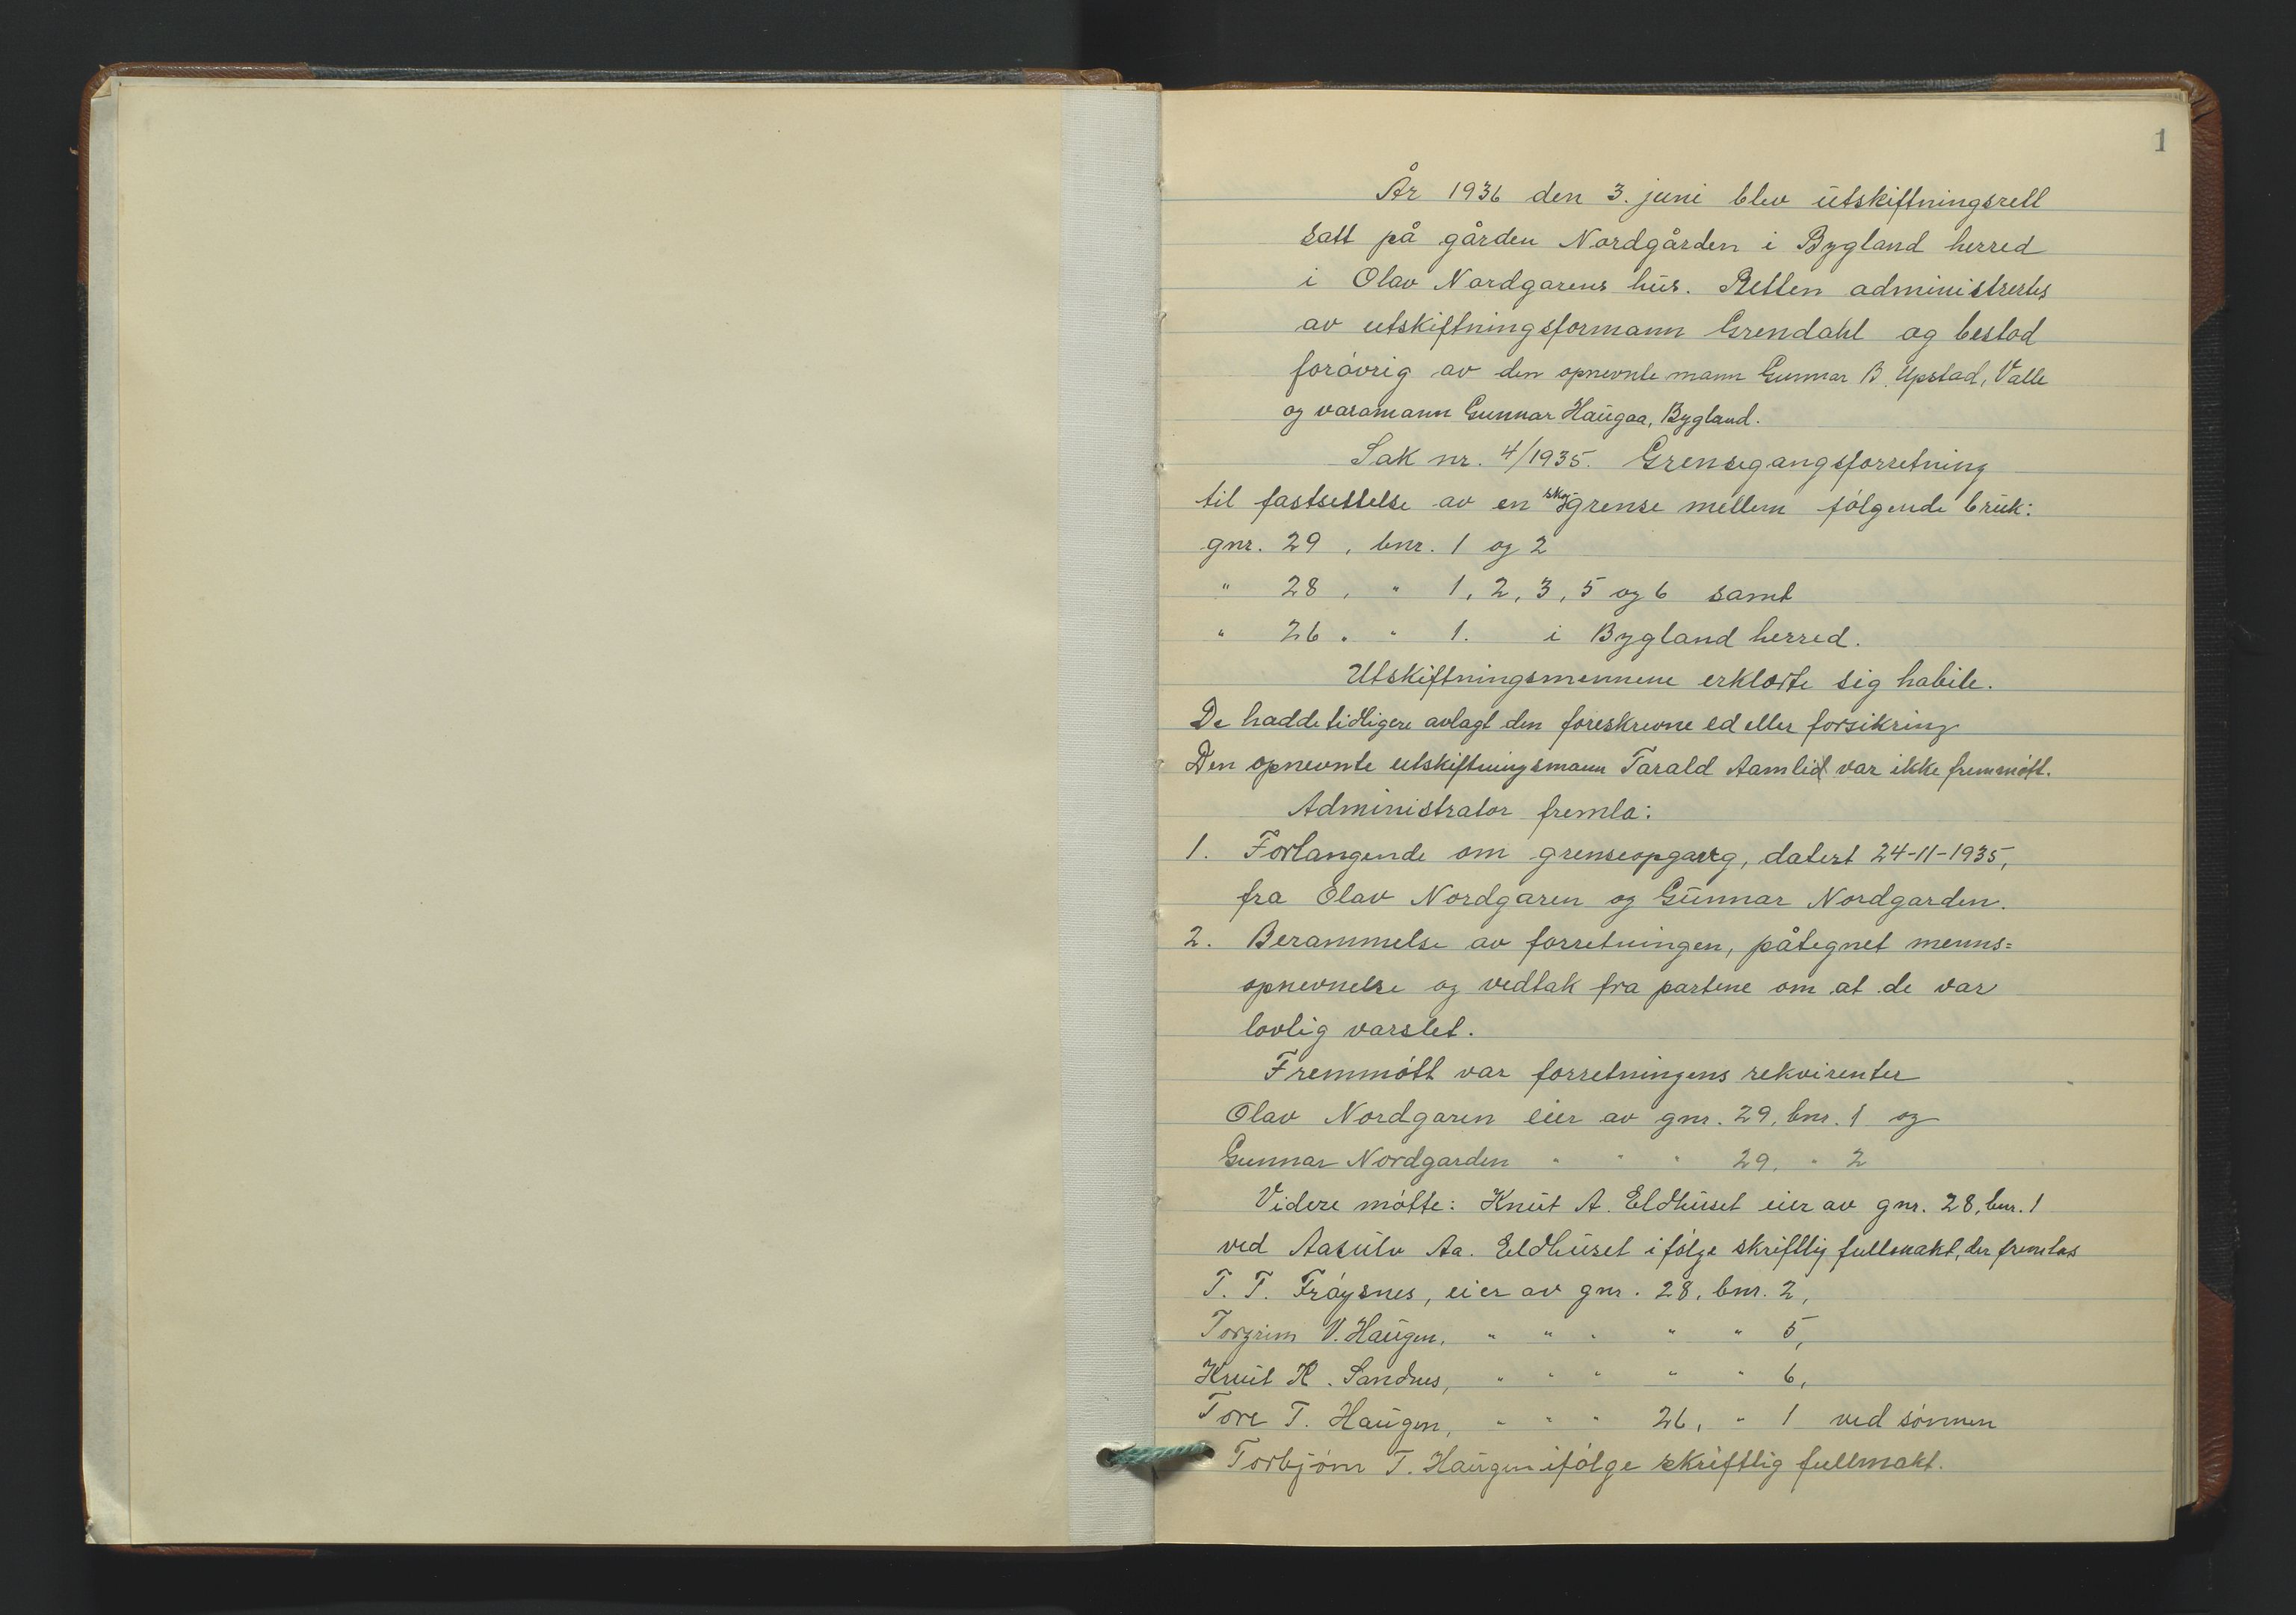 1
År 1936 den 3. juni blev utskiftningsrett
satt på gården Nordgården i Bygland herred
i Olav Nordgarens hus. Retten administrertes
av utskiftningsformann Grendahl og bestod
forøvrig av den opnevnte mann Gunnar B. Upstad, Valle
og varamann Gunnar Haugaa, Bygland.
Sak nr. 4/1935. Grensegangsforretning
til fastsettelse av en skoggrense mellem følgende bruk:
gnr. 29, bnr. 1 og 2
" 28, " 1, 2, 3, 5 og 6 samt
" 26, " 1. i Bygland herred.
Utskiftningsmennene erklærte sig habile.
De hadde tidligere avlagt den foreskrevne ed eller forsikring
Den opnevnte utskiftningsmann Tarald Aamlid var ikke fremmøtt.
Administrator fremla:
1. Forlangende om grenseopgang, datert 24-11-1935,
fra Olav Nordgaren og Gunnar Nordgarden.
2. Berammelse av forretningen, påtegnet menns=
opnevnelse og vedtak fra partene om at de var
lovlig varslet.
Fremmøtt var forretningens rekvirenter
Olav Nordgaren eier av gnr. 29, bnr. 1 og
Gunnar Nordgarden " " " 29, " 2
Videre møtte: Knut A. Eldhuset eier av gnr. 28, bnr. 1
ved Aasulv Aa. Eldhuset ifølge skriftlig fullmakt, der fremlas
T. T. Frøysnes, eier av gnr. 28, bnr. 2,
Torgrim V. Haugen, " " " " " 5,
Knut K. Sandnes, " " " " " 6,
Tore T. Haugen, " " " 26, " 1 ved sønnen
Torbjørn T. Haugen ifølge skriftlig fullmakt.